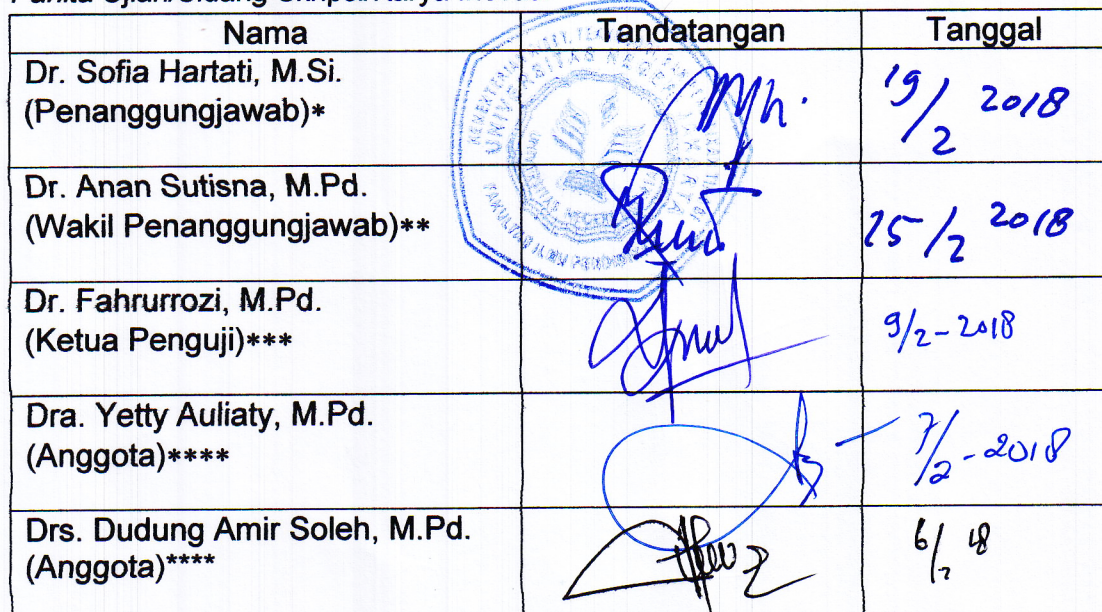 Nama Tandatangan Tanggal
Dr. Sofia Hartati, M.Si.
(Penanggungjawab)* 19/2 2018
Dr. Anan Sutisna, M.Pd.
(Wakil Penanggungjawab)** 25/2 2018
Dr. Fahrurrozi, M.Pd.
(Ketua Penguji)*** 9/2-2018
Dra. Yetty Auliaty, M.Pd.
(Anggota)**** 7/2-2018
Drs. Dudung Amir Soleh, M.Pd.
(Anggota)**** 6/2 18